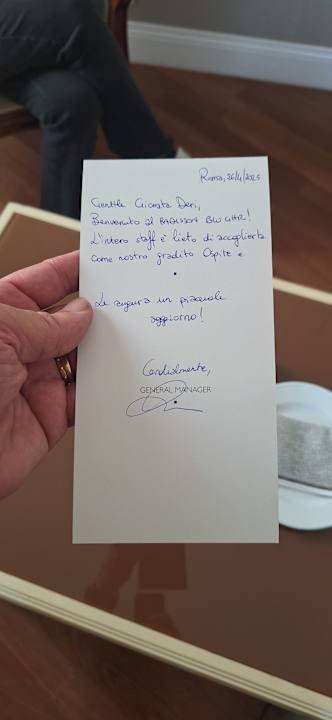 Roma, 26/4/2025
Gentile Giornata Deri,
Benvenuto al RADISSON BLU GHR!
L'intero staff è lieto di accoglierla
come nostro gradito Ospite e
Le augura un piacevole
soggiorno!
Cordialmente,
GENERAL MANAGER